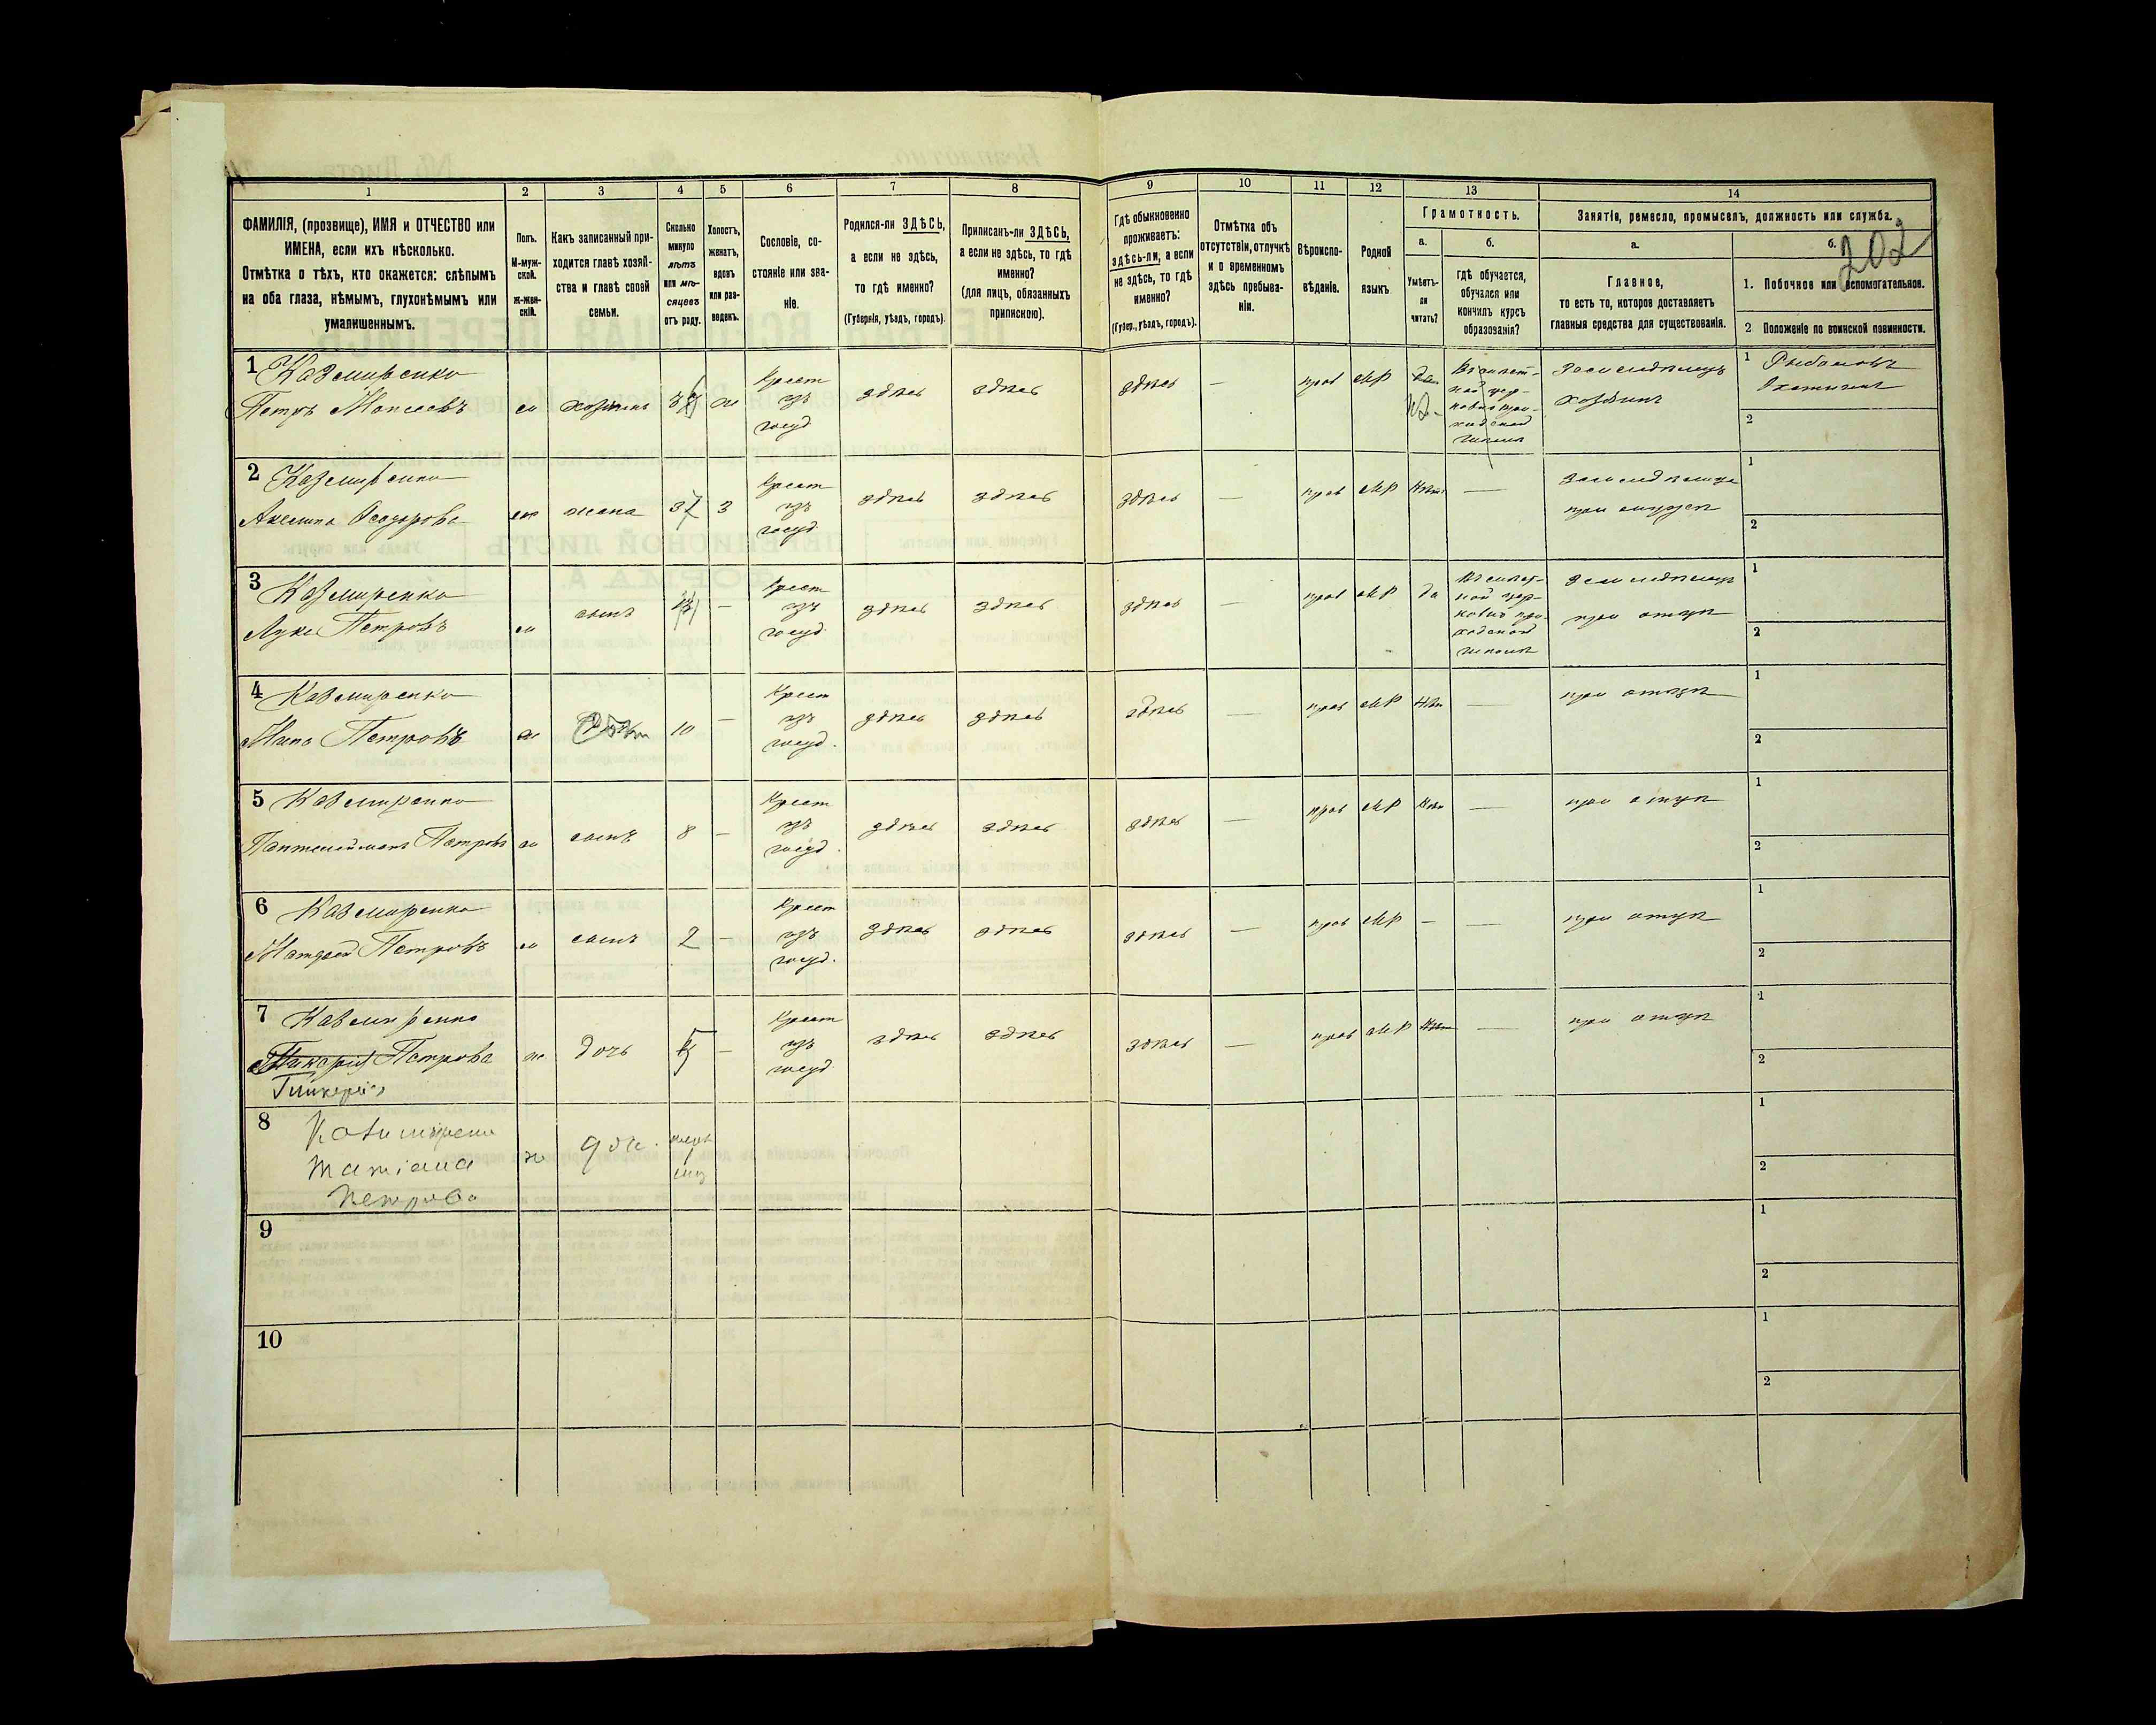 202
1
2
3
4
5
6
7
8
9
10
11
12
13
14
ФАМИЛІЯ, (прозвище), ИМЯ и ОТЧЕСТВО или
ИМЕНА, если ихъ нѣсколько.
Отмѣтка о тѣхъ, кто окажется: слѣпымъ
на оба глаза, нѣмымъ, глухонѣмымъ или
умалишеннымъ.
Полъ.
М-муж-
ской.
ж-жен-
скій.
Какъ записанный при-
ходится главѣ хозяй-
ства и главѣ своей
семьи.
Сколько
минуло
лѣтъ
или мѣ-
сяцевъ
отъ роду.
Холостъ,
женатъ,
вдовъ
или раз-
веденъ.
Сословіе, со-
стояніе или зва-
ніе.
Родился-ли ЗДѢСЬ,
а если не здѣсь,
то гдѣ именно?
(Губернія, уѣздъ, городъ).
Приписанъ-ли ЗДѢСЬ,
а если не здѣсь, то гдѣ
именно?
(для лицъ, обязанныхъ
припискою).
Гдѣ обыкновенно
проживаетъ:
здѣсь-ли, а если
не здѣсь, то гдѣ
именно?
(Губер., уѣздъ, городъ).
Отмѣтка объ
отсутствіи, отлучкѣ
и о временномъ
здѣсь пребыва-
ніи.
Вѣроиспо-
вѣданіе.
Родной
языкъ.
Грамотность.
а.
Умѣетъ-
ли
читать?
б.
гдѣ обучается,
обучался или
кончилъ курсъ
образованія?
Занятія, ремесло, промыселъ, должность или служба.
а.
Главное,
то есть то, которое доставляетъ
главныя средства для существованія.
б.
1. Побочное или вспомогательное.
2 Положеніе по воинской повинности.
1 Казмиренко
Петръ Моисеевъ
м хозяинъ ж
Крест
изъ
госуд
здѣсь здѣсь здѣсь — прав МР да
земледѣлецъ
хозяинъ
1
2
2 Казмиренко
Акелина Федорова
жена 37 з
Крест
изъ
госуд
здѣсь здѣсь здѣсь — прав МР Нѣт —
при мужѣ
1
2
3 Казмиренко
Лука Петровъ
м сынъ —
Крест
изъ
госуд.
здѣсь здѣсь здѣсь — прав МР да
земледѣлецъ
при отцѣ
1
2
4 Казмиренко
Петровъ
ж 10 —
Крест
изъ
госуд.
здѣсь здѣсь здѣсь — прав МР Нѣт —
при отцѣ
1
2
5 Казмиренко
Пантелеймонъ Петровъ
м сынъ 8 —
Крест
изъ
госуд.
здѣсь здѣсь здѣсь — прав МР Нѣт —
при отцѣ
1
2
6 Казмиренко
Матфей Петровъ
м сынъ 2 —
Крест
изъ
госуд.
здѣсь здѣсь здѣсь — прав МР — —
при отцѣ
1
2
7 Казмиренко
Петрова
Гликерія
ж дочь 5 —
Крест
изъ
госуд
здѣсь здѣсь здѣсь — прав МР Нѣт —
при отцѣ
1
2
8
Татіана
Петрова
ж доч.
1
2
9
1
2
10
1
2